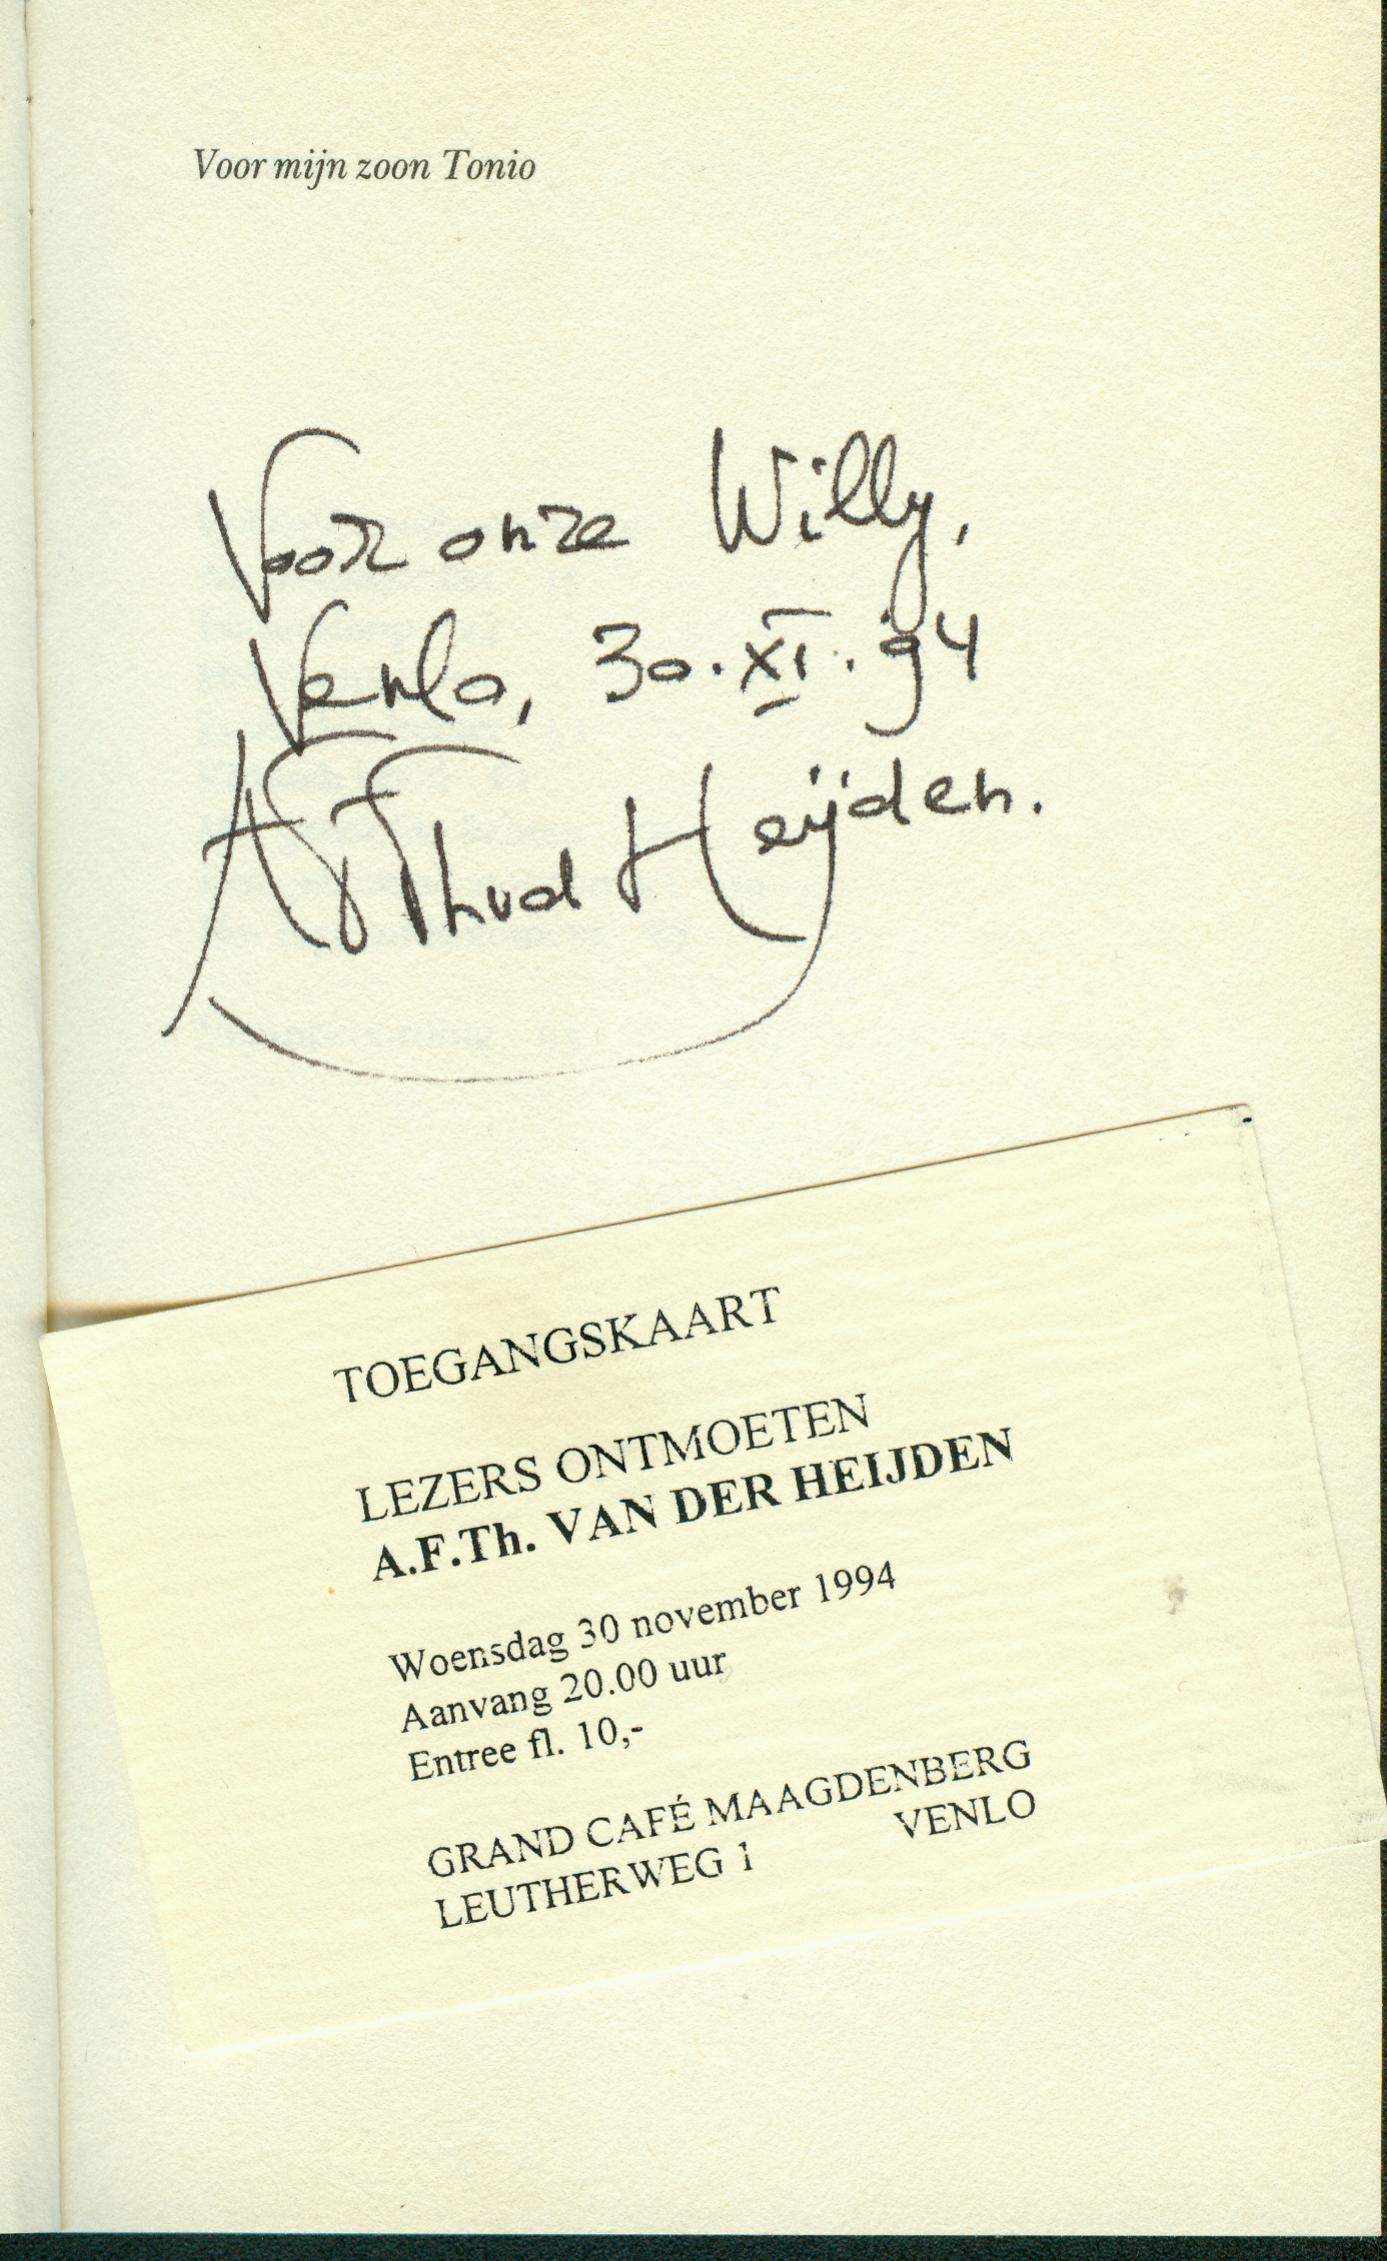 Voor mijn zoon Tonio
Voor onze Willy,
Venlo, 30.XI.94
AFThvd Heijden.
TOEGANGSKAART
LEZERS ONTMOETEN
A.F.Th. VAN DER HEIJDEN
Woensdag 30 november 1994
Aanvang 20.00 uur
Entree fl. 10,-
GRAND CAFÉ MAAGDENBERG
LEUTHERWEG 1 VENLO